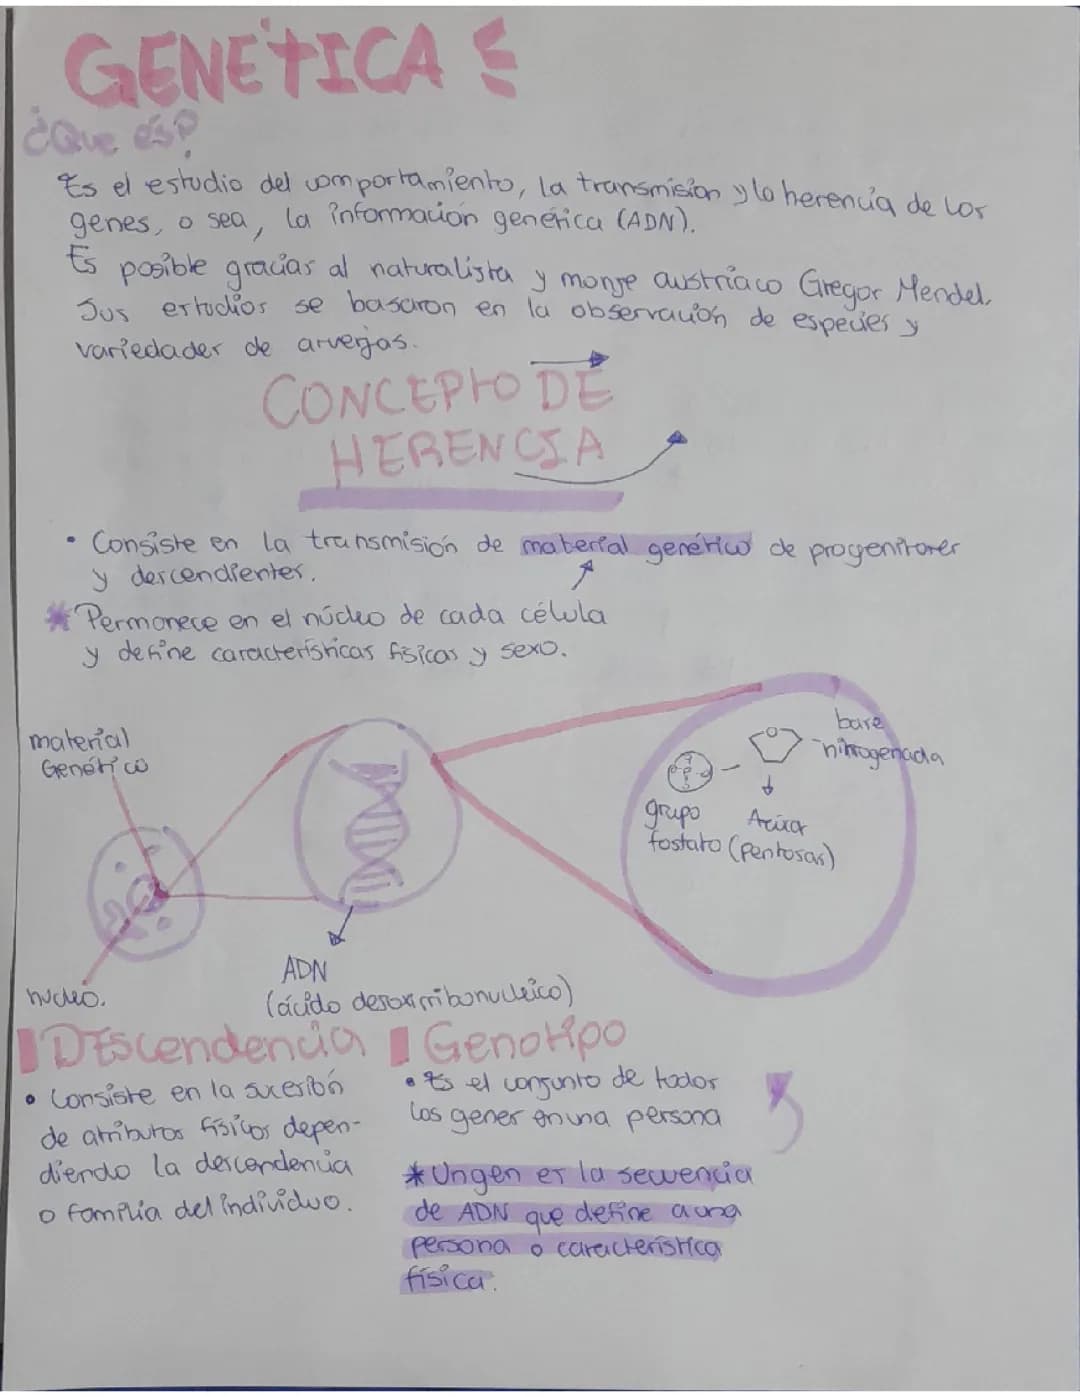 GENETICA
¿Que es?
Es el estudio del comportamiento, la transmisión y la herencia de los
genes, o sea, la información genética (ADN).
Es posible gracias al naturalista y monje austríaco Gregor Mendel.
Sus estudios se basaron en la observación de especies y
variedades de arvejas.
CONCEPTO DE
HERENCIA
• Consiste en la transmisión de material genético de progenitores
y descendientes.
* Permanece en el núcleo de cada célula
y define características físicas y sexo.
material
Genético
núcleo.
ADN
(ácido desoxirribonucleico)
grupo
fosfato
Azúcar
(pentosas)
base
nitrogenada
Descendencia
• Consiste en la sucesión
de atributos físicos depen-
diendo la descendencia
o familia del individuo.
Genotipo
• Es el conjunto de todos
los genes en una persona
* Un gen es la secuencia
de ADN que define a una
persona o característica
física.